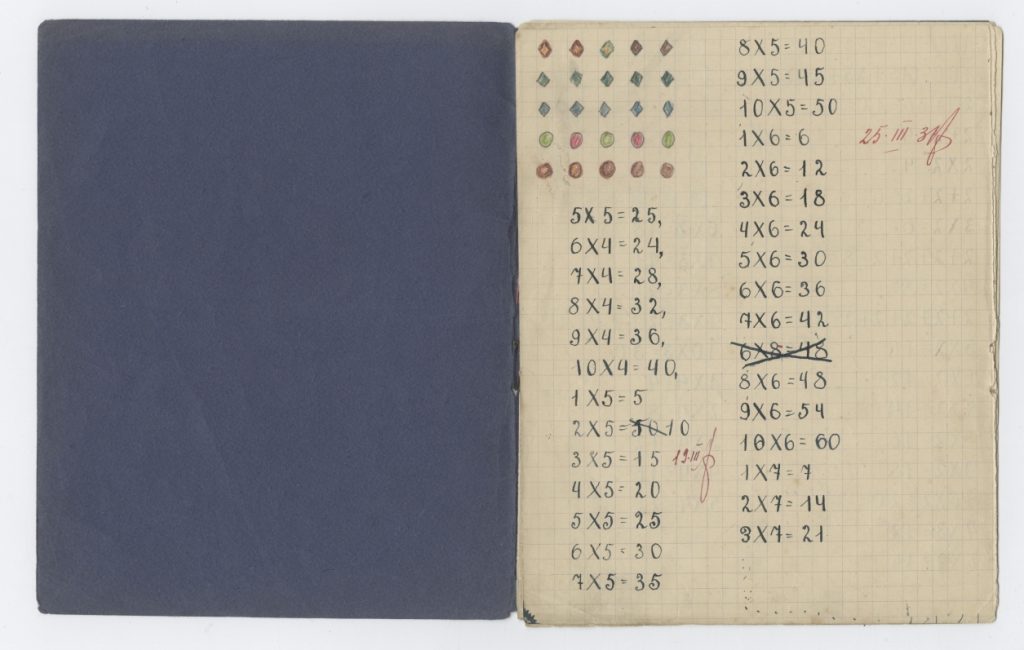 5X5=25,
6X4=24,
7X4=28,
8X4=32,
9X4=36,
10X4=40,
1X5=5
2X5=50 10
3X5=15
19.III
4X5=20
5X5=25
6X5=30
7X5=35
8X5=40
9X5=45
10X5=50
1X6=6
25.III
2X6=12
3X6=18
4X6=24
5X6=30
6X6=36
7X6=42
6X8=48
8X6=48
9X6=54
10X6=60
1X7=7
2X7=14
3X7=21